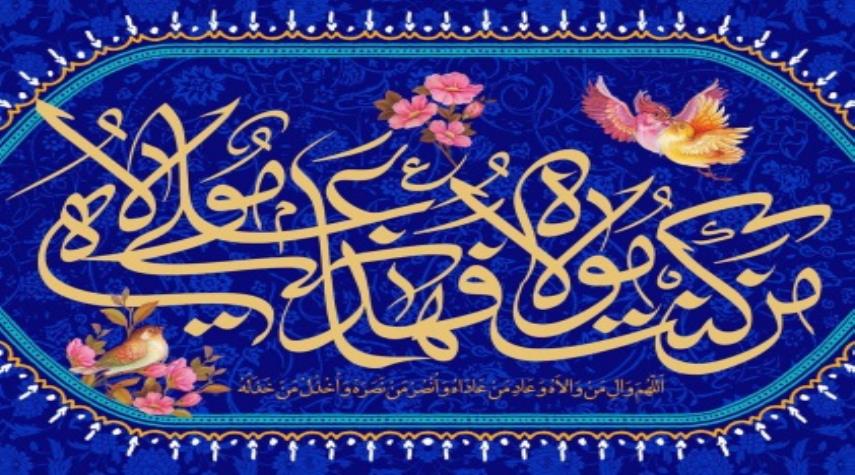 مَن كُنتُ مَولاهُ فَهذا عَلیٌّ مَولاهُ
اَللّهُمَّ وَالِ مَنْ وَالاهُ وَ عَادِ مَنْ عَادَاهُ وَ انْصُرْ مَنْ نَصَرَهُ وَ اخْذُلْ مَنْ خَذَلَهُ